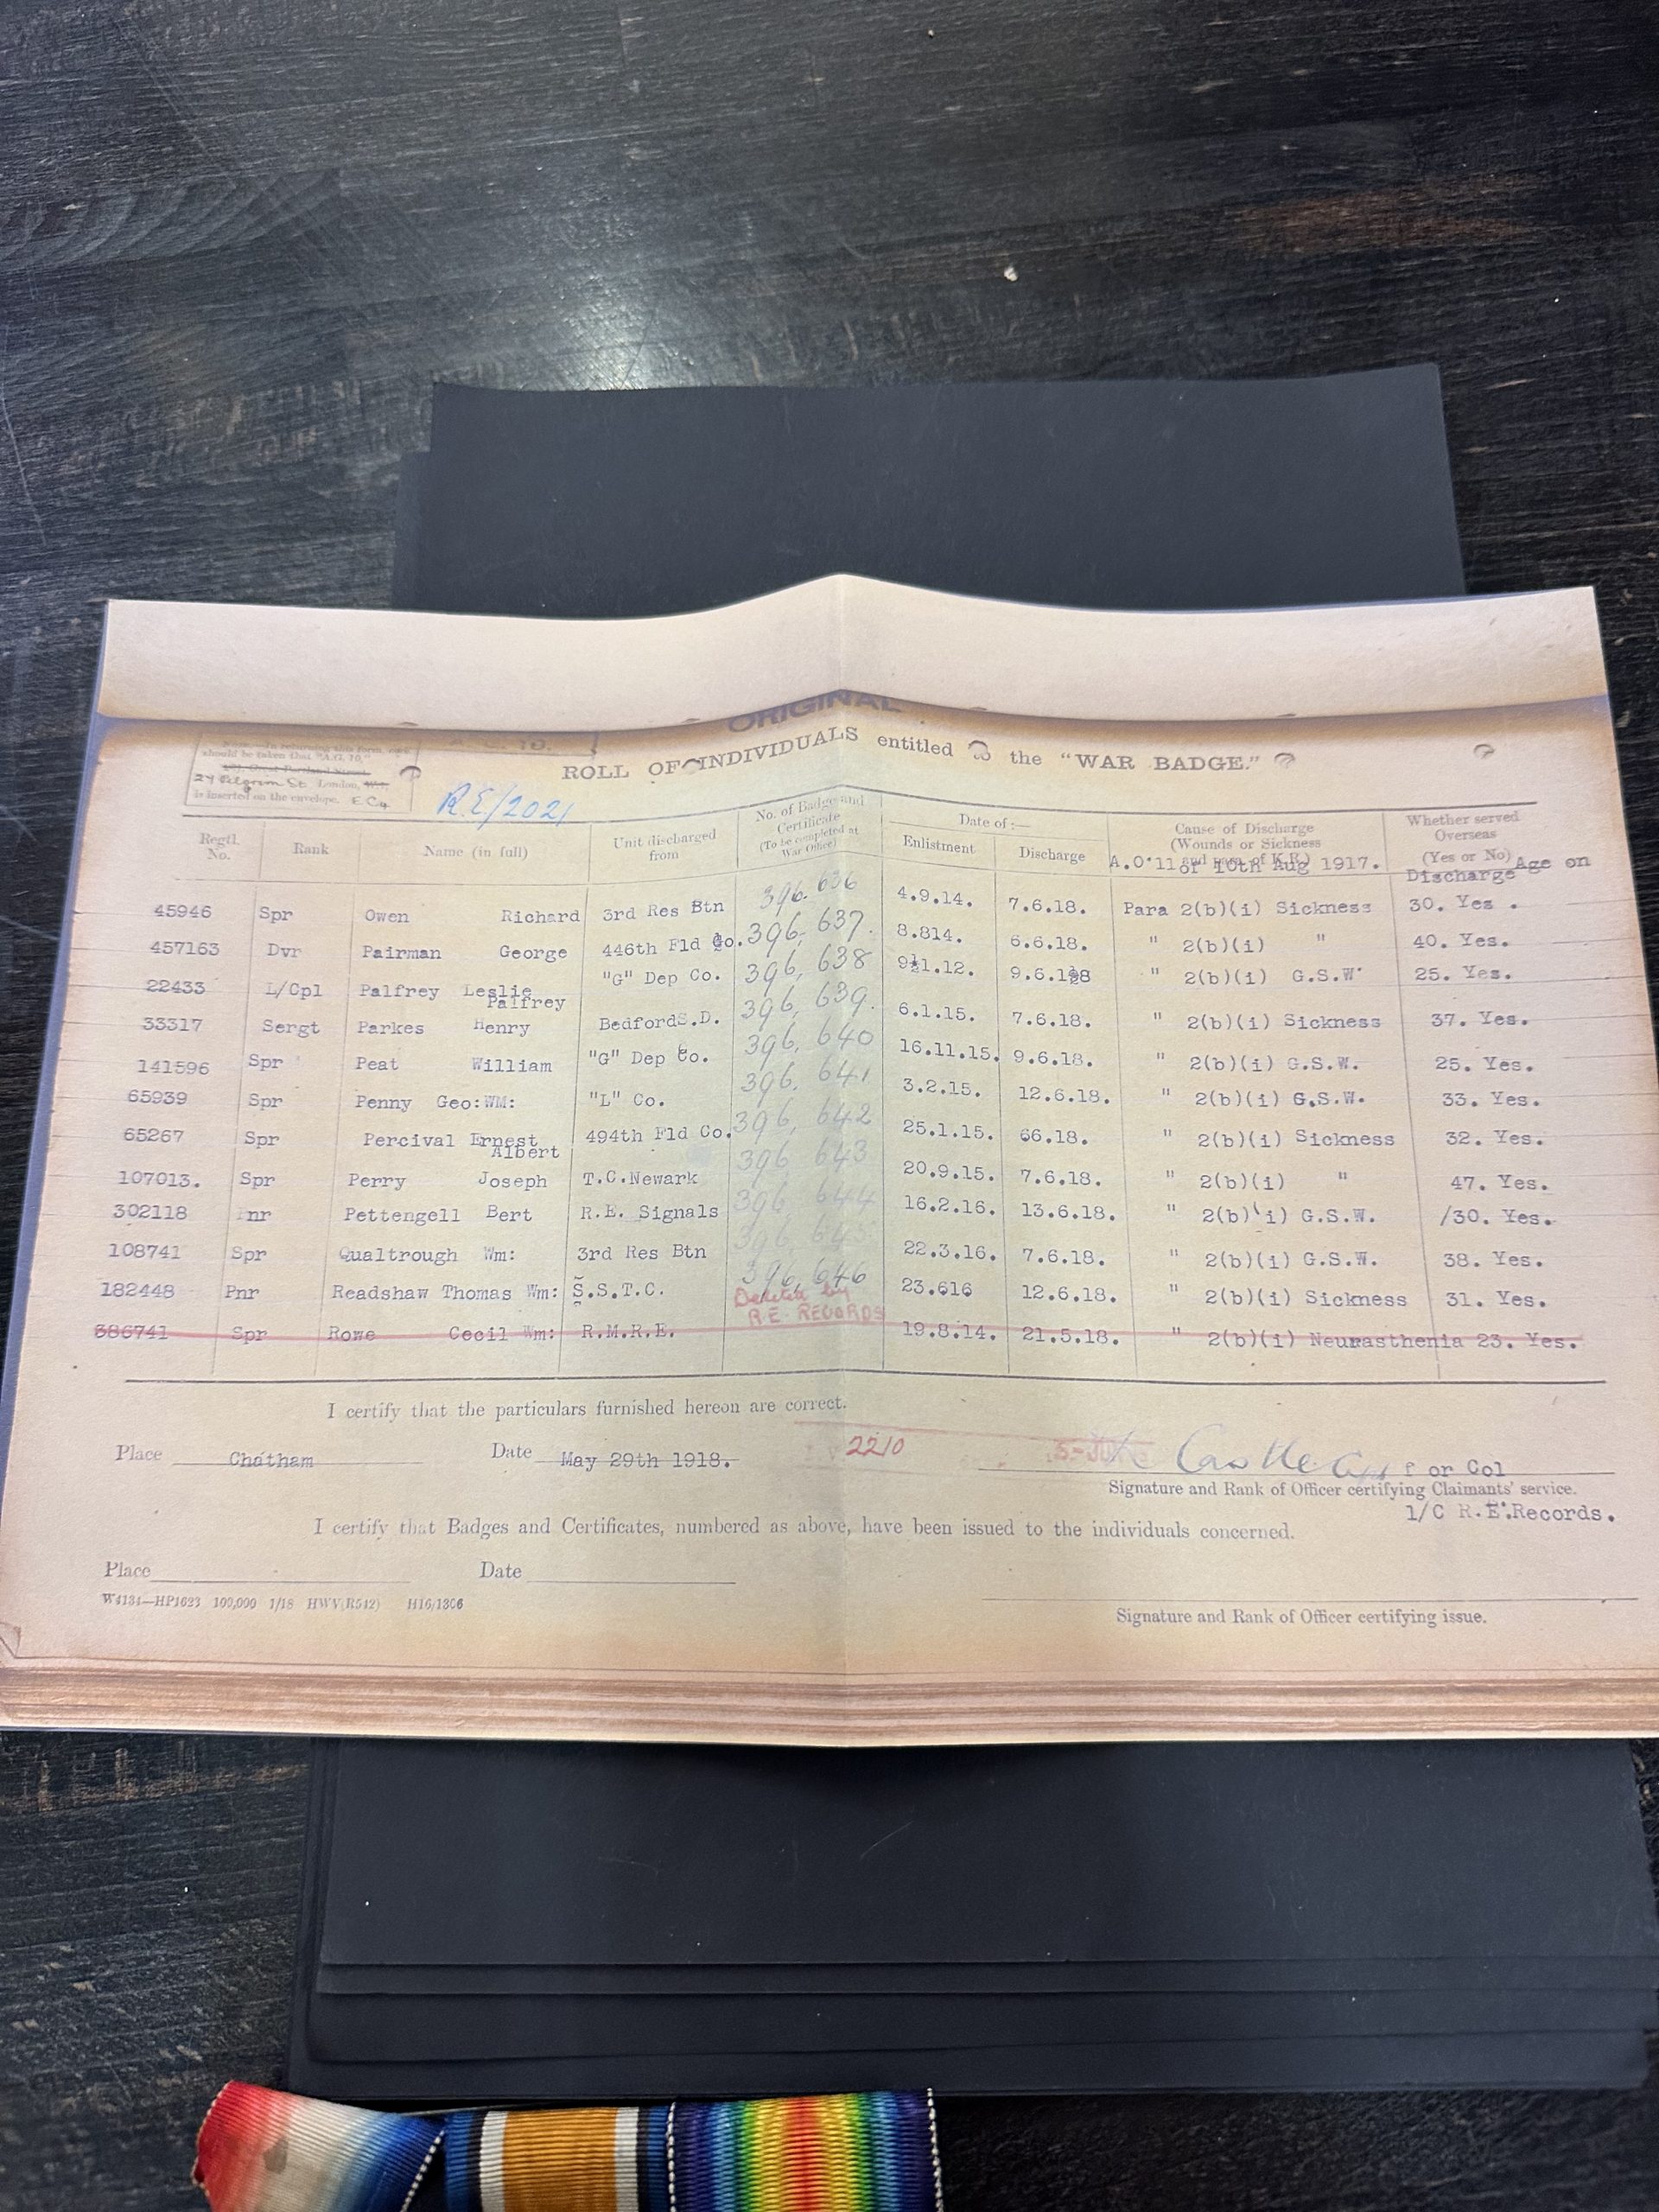 ORIGINAL
ROLL OF INDIVIDUALS entitled to the "WAR BADGE."
should be taken that "A.G. 10,"
24 Pilgrim St London,
is inserted on the envelope. E C4
R.E/2021
Regtl. No. Rank Name (in full) Unit discharged from No. of Badge and Certificate (To be completed at War Office) Date of:— Enlistment Discharge Cause of Discharge (Wounds or Sickness and para. of K.R.) Whether served Overseas (Yes or No)
A.O'11 of 10th Aug 1917. Age on Discharge
45946 Spr Owen Richard 3rd Res Btn 396.636 4.9.14. 7.6.18. Para 2(b)(i) Sickness 30. Yes .
457163 Dvr Pairman George 446th Fld Co. 396, 637. 8.814. 6.6.18. " 2(b)(i) " 40. Yes.
22433 L/Cpl Palfrey Leslie Palfrey "G" Dep Co. 396, 638 911.12. 9.6.18 " 2(b)(i) G.S.W. 25. Yes.
33317 Sergt Parkes Henry BedfordS.D. 396, 639. 6.1.15. 7.6.18. " 2(b)(i) Sickness 37. Yes.
141596 Spr Peat William "G" Dep Co. 396, 640 16.11.15. 9.6.18. " 2(b)(i) G.S.W. 25. Yes.
65939 Spr Penny Geo:WM: "L" Co. 396, 641 3.2.15. 12.6.18. " 2(b)(i) G.S.W. 33. Yes.
65267 Spr Percival Ernest Albert 494th Fld Co. 396, 642 25.1.15. 66.18. " 2(b)(i) Sickness 32. Yes.
107013. Spr Perry Joseph T.C.Newark 396 643 20.9.15. 7.6.18. " 2(b)(i) " 47. Yes.
302118 nr Pettengell Bert R.E. Signals 396, 644 16.2.16. 13.6.18. " 2(b)'i) G.S.W. /30. Yes.
108741 Spr Qualtrough Wm: 3rd Res Btn 396 645 22.3.16. 7.6.18. " 2(b)(i) G.S.W. 38. Yes.
182448 Pnr Readshaw Thomas Wm: S.S.T.C. 396,646 23.616 12.6.18. " 2(b)(i) Sickness 31. Yes.
Deleted by R.E. RECORDS
386741 Spr Rowe Cecil Wm: R.M.R.E. 19.8.14. 21.5.18. " 2(b)(i) Neurasthenia 23. Yes.
I certify that the particulars furnished hereon are correct.
Place Chatham Date May 29th 1918. 2210 Castle f or Col
Signature and Rank of Officer certifying Claimants' service.
1/C R.E.Records.
I certify that Badges and Certificates, numbered as above, have been issued to the individuals concerned.
Place Date
W4134—HP1623 100,000 1/18 HWV(R542) H16/1306
Signature and Rank of Officer certifying issue.